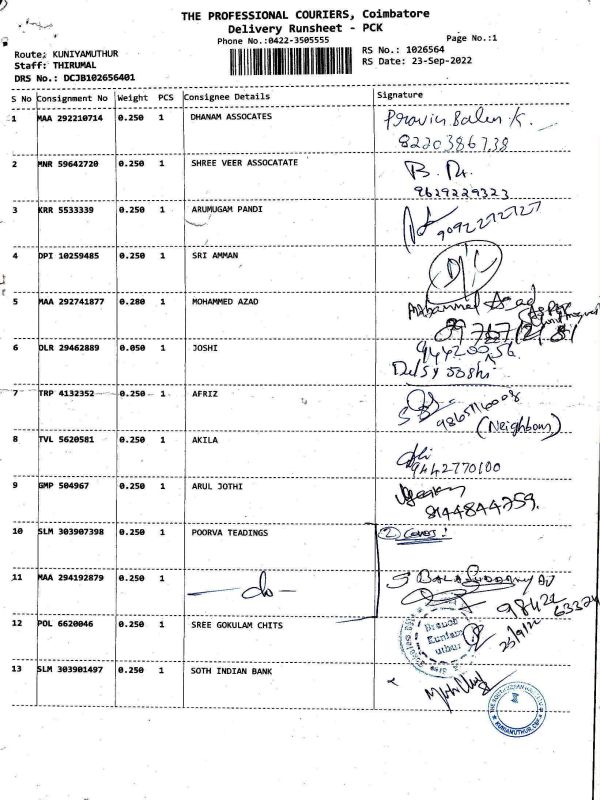 THE PROFESSIONAL COURIERS, Coimbatore
Delivery Runsheet - PCK
Phone No.:0422-3505555
Page No.:1
Route: KUNIYAMUTHUR
RS No.: 1026564
Staff: THIRUMAL
RS Date: 23-Sep-2022
DRS No.: DCJB102656401
S No Consignment No Weight PCS Consignee Details Signature
1 MAA 292210714 0.250 1 DHANAM ASSOCATES
8220386738
2 MNR 59642720 0.250 1 SHREE VEER ASSOCATATE
9629229323
3 KRR 5533339 0.250 1 ARUMUGAM PANDI
9092272727
4 DPI 10259485 0.250 1 SRI AMMAN
5 MAA 292741877 0.280 1 MOHAMMED AZAD
6 DLR 29462889 0.050 1 JOSHI
Delsy Joshi
7 TRP 4132352 0.250 1 AFRIZ
(Neighbour)
8 TVL 5620581 0.250 1 AKILA
9442770100
9 GMP 504967 0.250 1 ARUL JOTHI
8144844759.
10 SLM 303907398 0.250 1 POORVA TEADINGS
2 Covers:
11 MAA 294192879 0.250 1 -do-
98421 63324
12 POL 6620046 0.250 1 SREE GOKULAM CHITS
Branch
Kuniam
uthur
23/9/22
13 SLM 303901497 0.250 1 SOTH INDIAN BANK